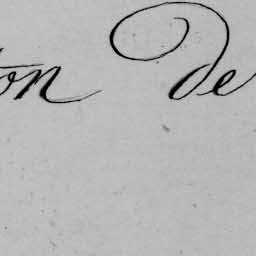 ton De